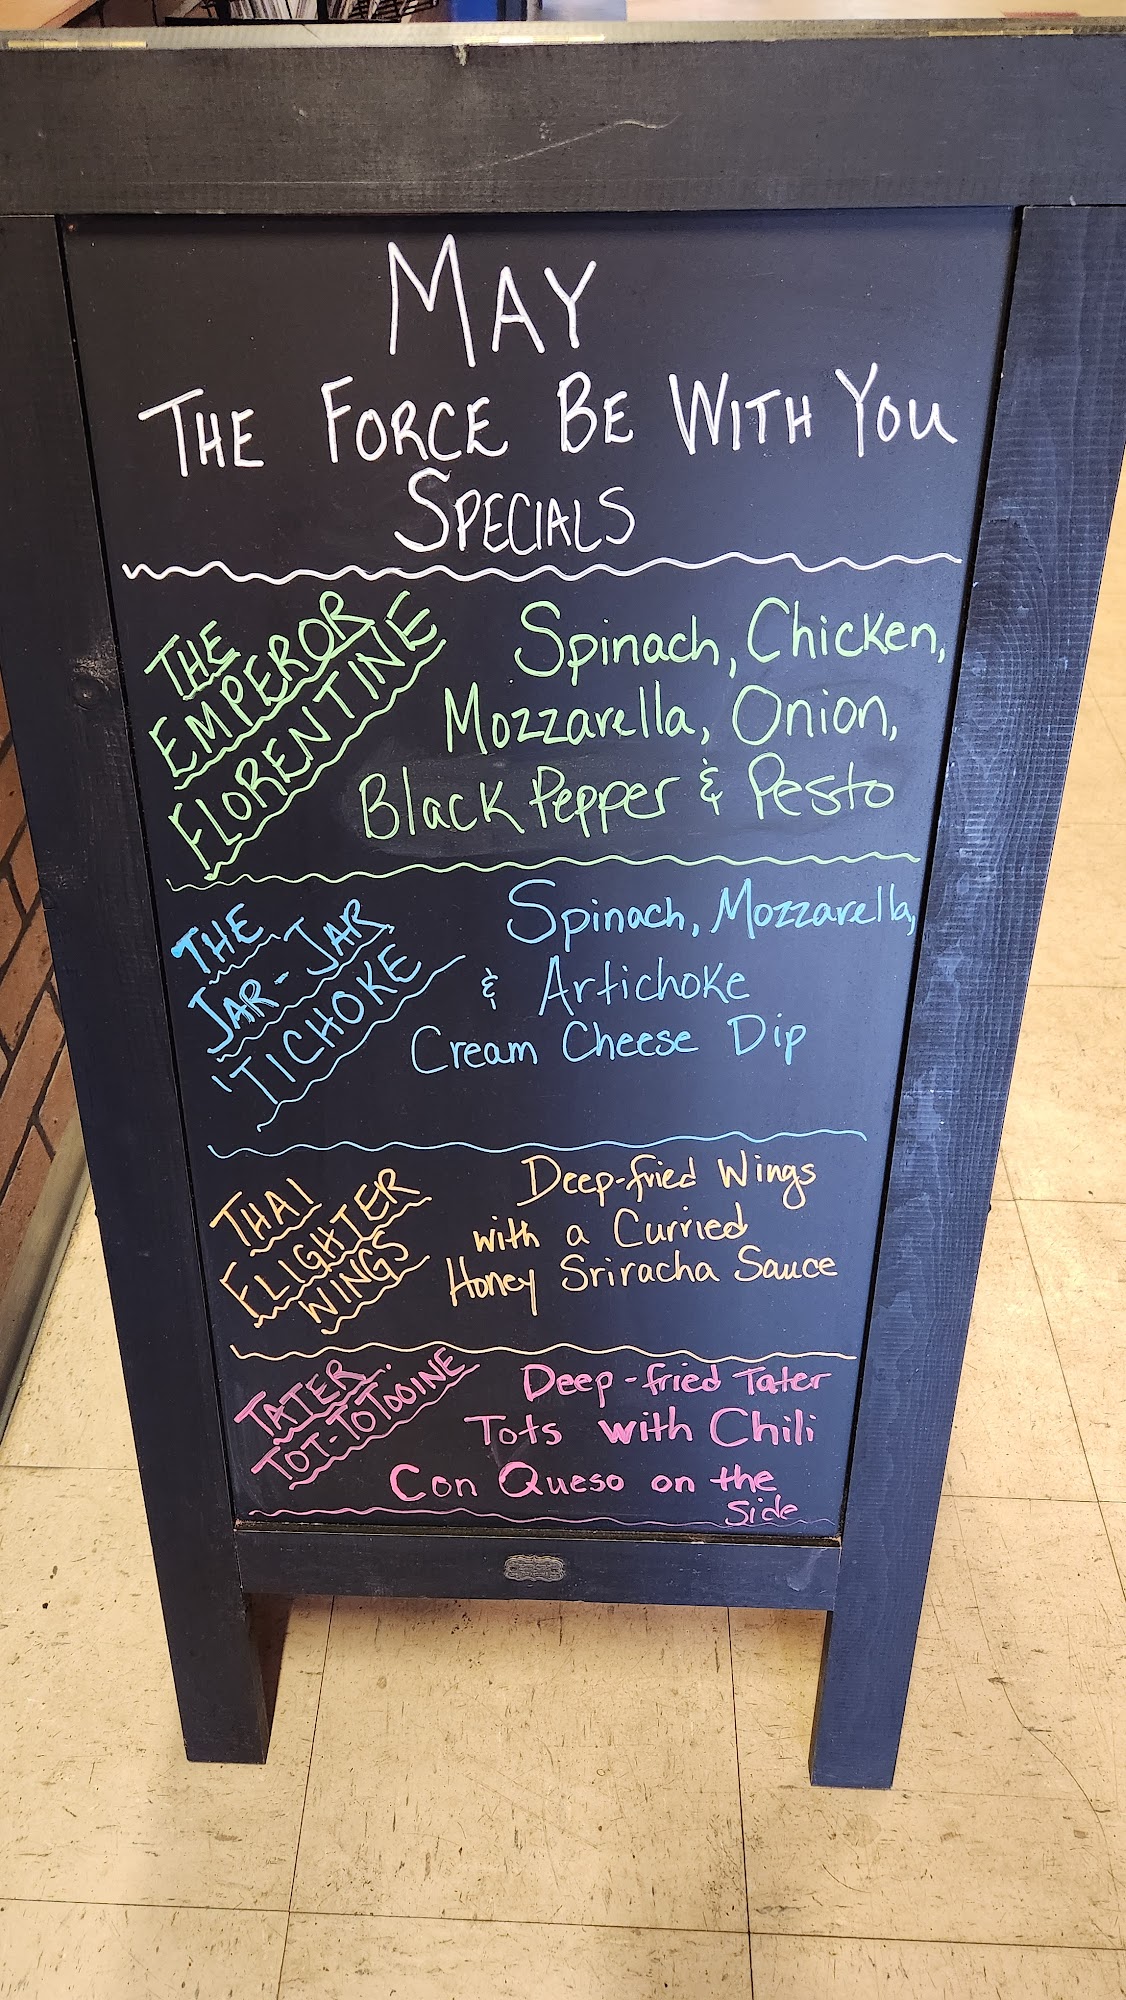 MAY
THE FORCE BE WITH YOU
SPECIALS
THE
EMPEROR
FLORENTINE
Spinach, Chicken,
Mozzarella, Onion,
Black Pepper & Pesto
THE
JAR-JAR
'TICHOKE
Spinach, Mozzarella,
& Artichoke
Cream Cheese Dip
THAI
FLIGHTER
WINGS
Deep-fried Wings
with a Curried
Honey Sriracha Sauce
TATER
TOT-TOTOOINE
Deep-fried Tater
Tots with Chili
Con Queso on the
Side